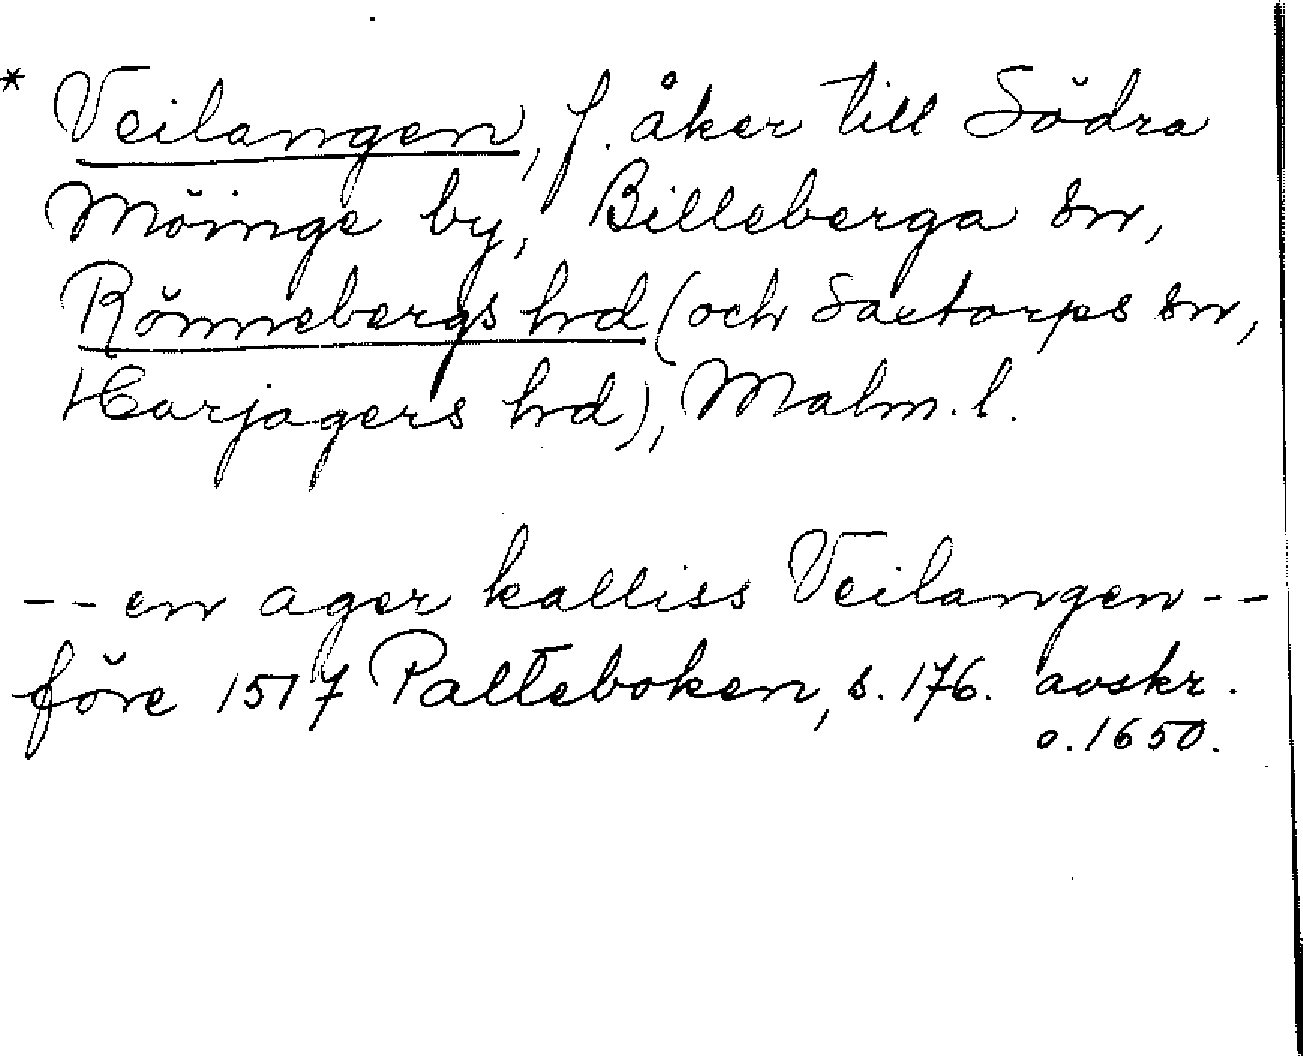 * Veilangen, f. åker till Södra
Möinge by, Billeberga sn,
Rönnebergs hrd (och Saxtorps sn,
Harjagers hrd), Malm. l.
-- en ager kalliss Veilangen --
före 1517 Palteboken, s. 176. avskr.
o. 1650.